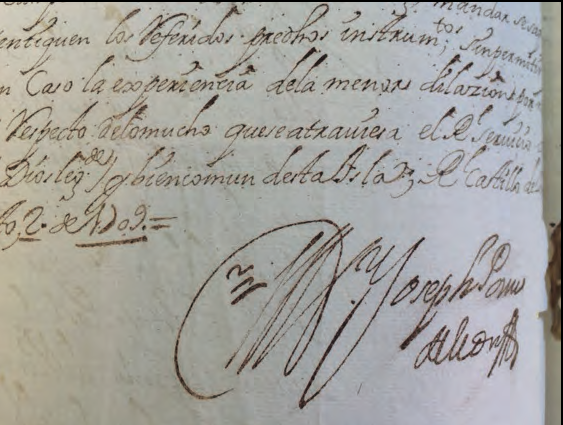 mandar se
entiquen los Referidos prechos instrumtos; sinpermitir
n Caso la experiencia dela menor dilazion por
Respecto delomucho queseatraviesa el Rl servicio
Dios leg de / y bien comun desta Isla y Rl Castillo de
to, 2. de 1709. =
Joseph Ponze
de leon